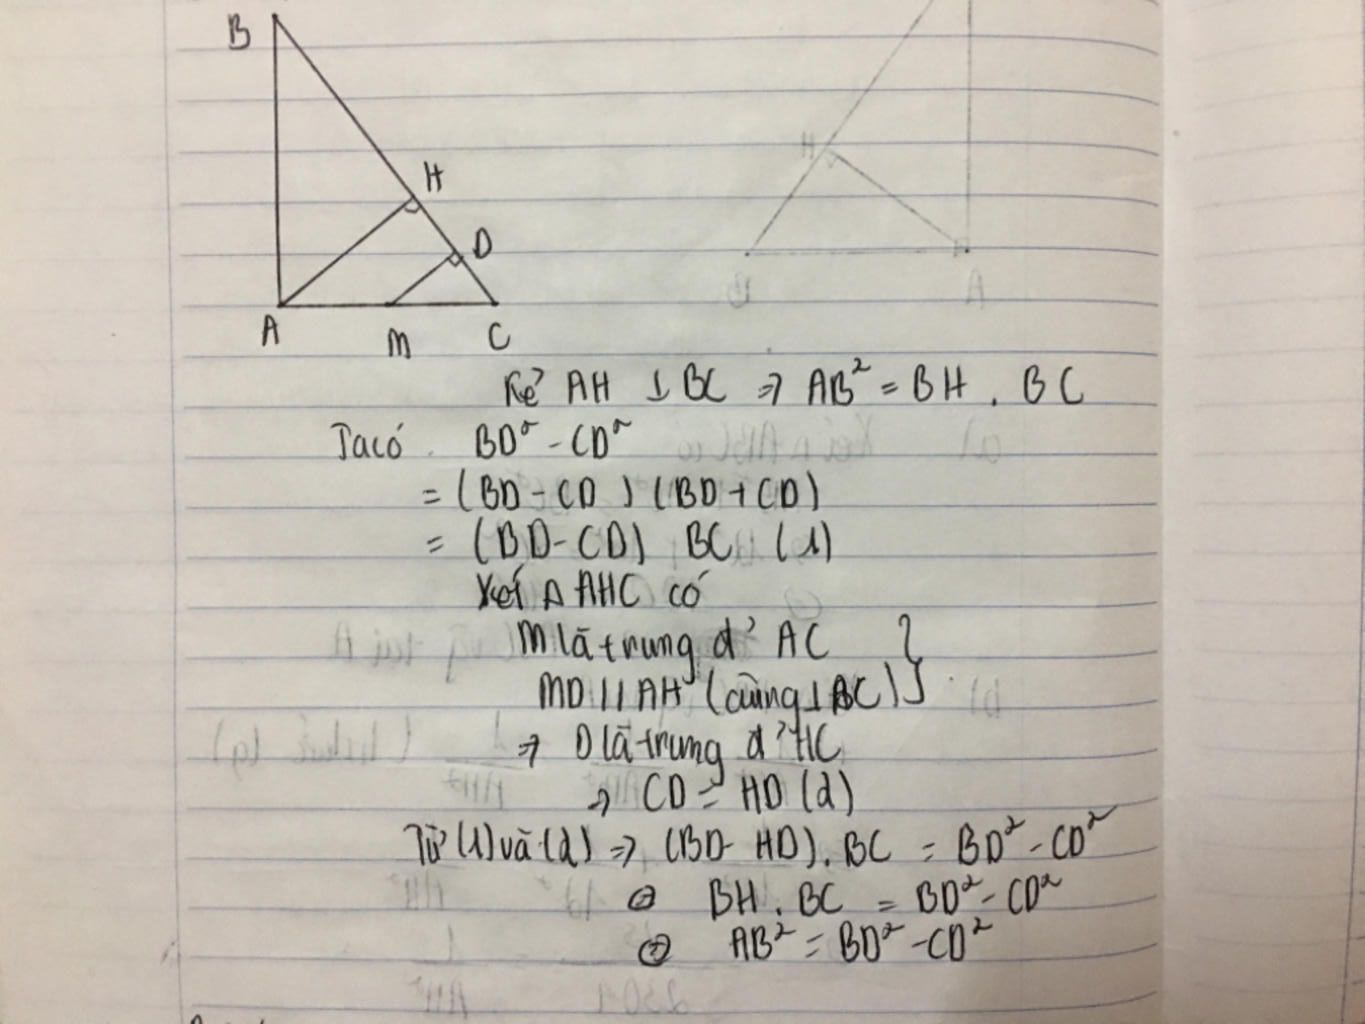 B
H
D
A
M
C
Kẻ AH ⊥ BC ⇒ AB² = BH . BC
Ta có . BD² - CD²
= (BD - CD) (BD + CD)
= (BD - CD) BC (1)
Xét Δ AHC có
M là trung đ' AC
MD // AH (cùng ⊥ BC)
⇒ D là trung đ' HC
⇒ CD = HD (2)
Từ (1) và (2) ⇒ (BD - HD) . BC = BD² - CD²
⇔ BH . BC = BD² - CD²
⇔ AB² = BD² - CD²